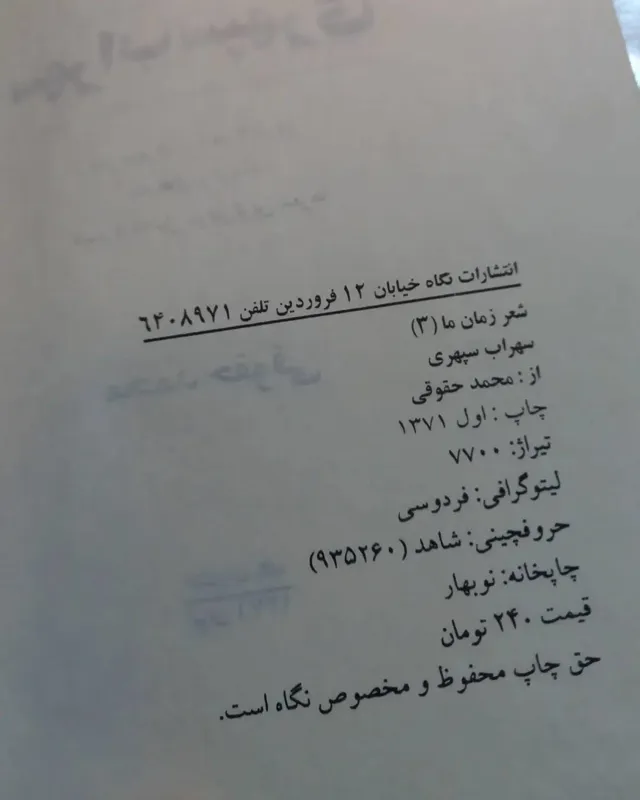 انتشارات نگاه خیابان ۱۲ فروردین تلفن ۶۴۰۸۹۷۱
شعر زمان ما (۳)
سهراب سپهری
از : محمد حقوقی
چاپ : اول ۱۳۷۱
تیراژ: ۷۷۰۰
لیتوگرافی: فردوسی
حروفچینی: شاهد (۹۳۵۲۶۰)
چاپخانه: نوبهار
قیمت ۲۴۰ تومان
حق چاپ محفوظ و مخصوص نگاه است.